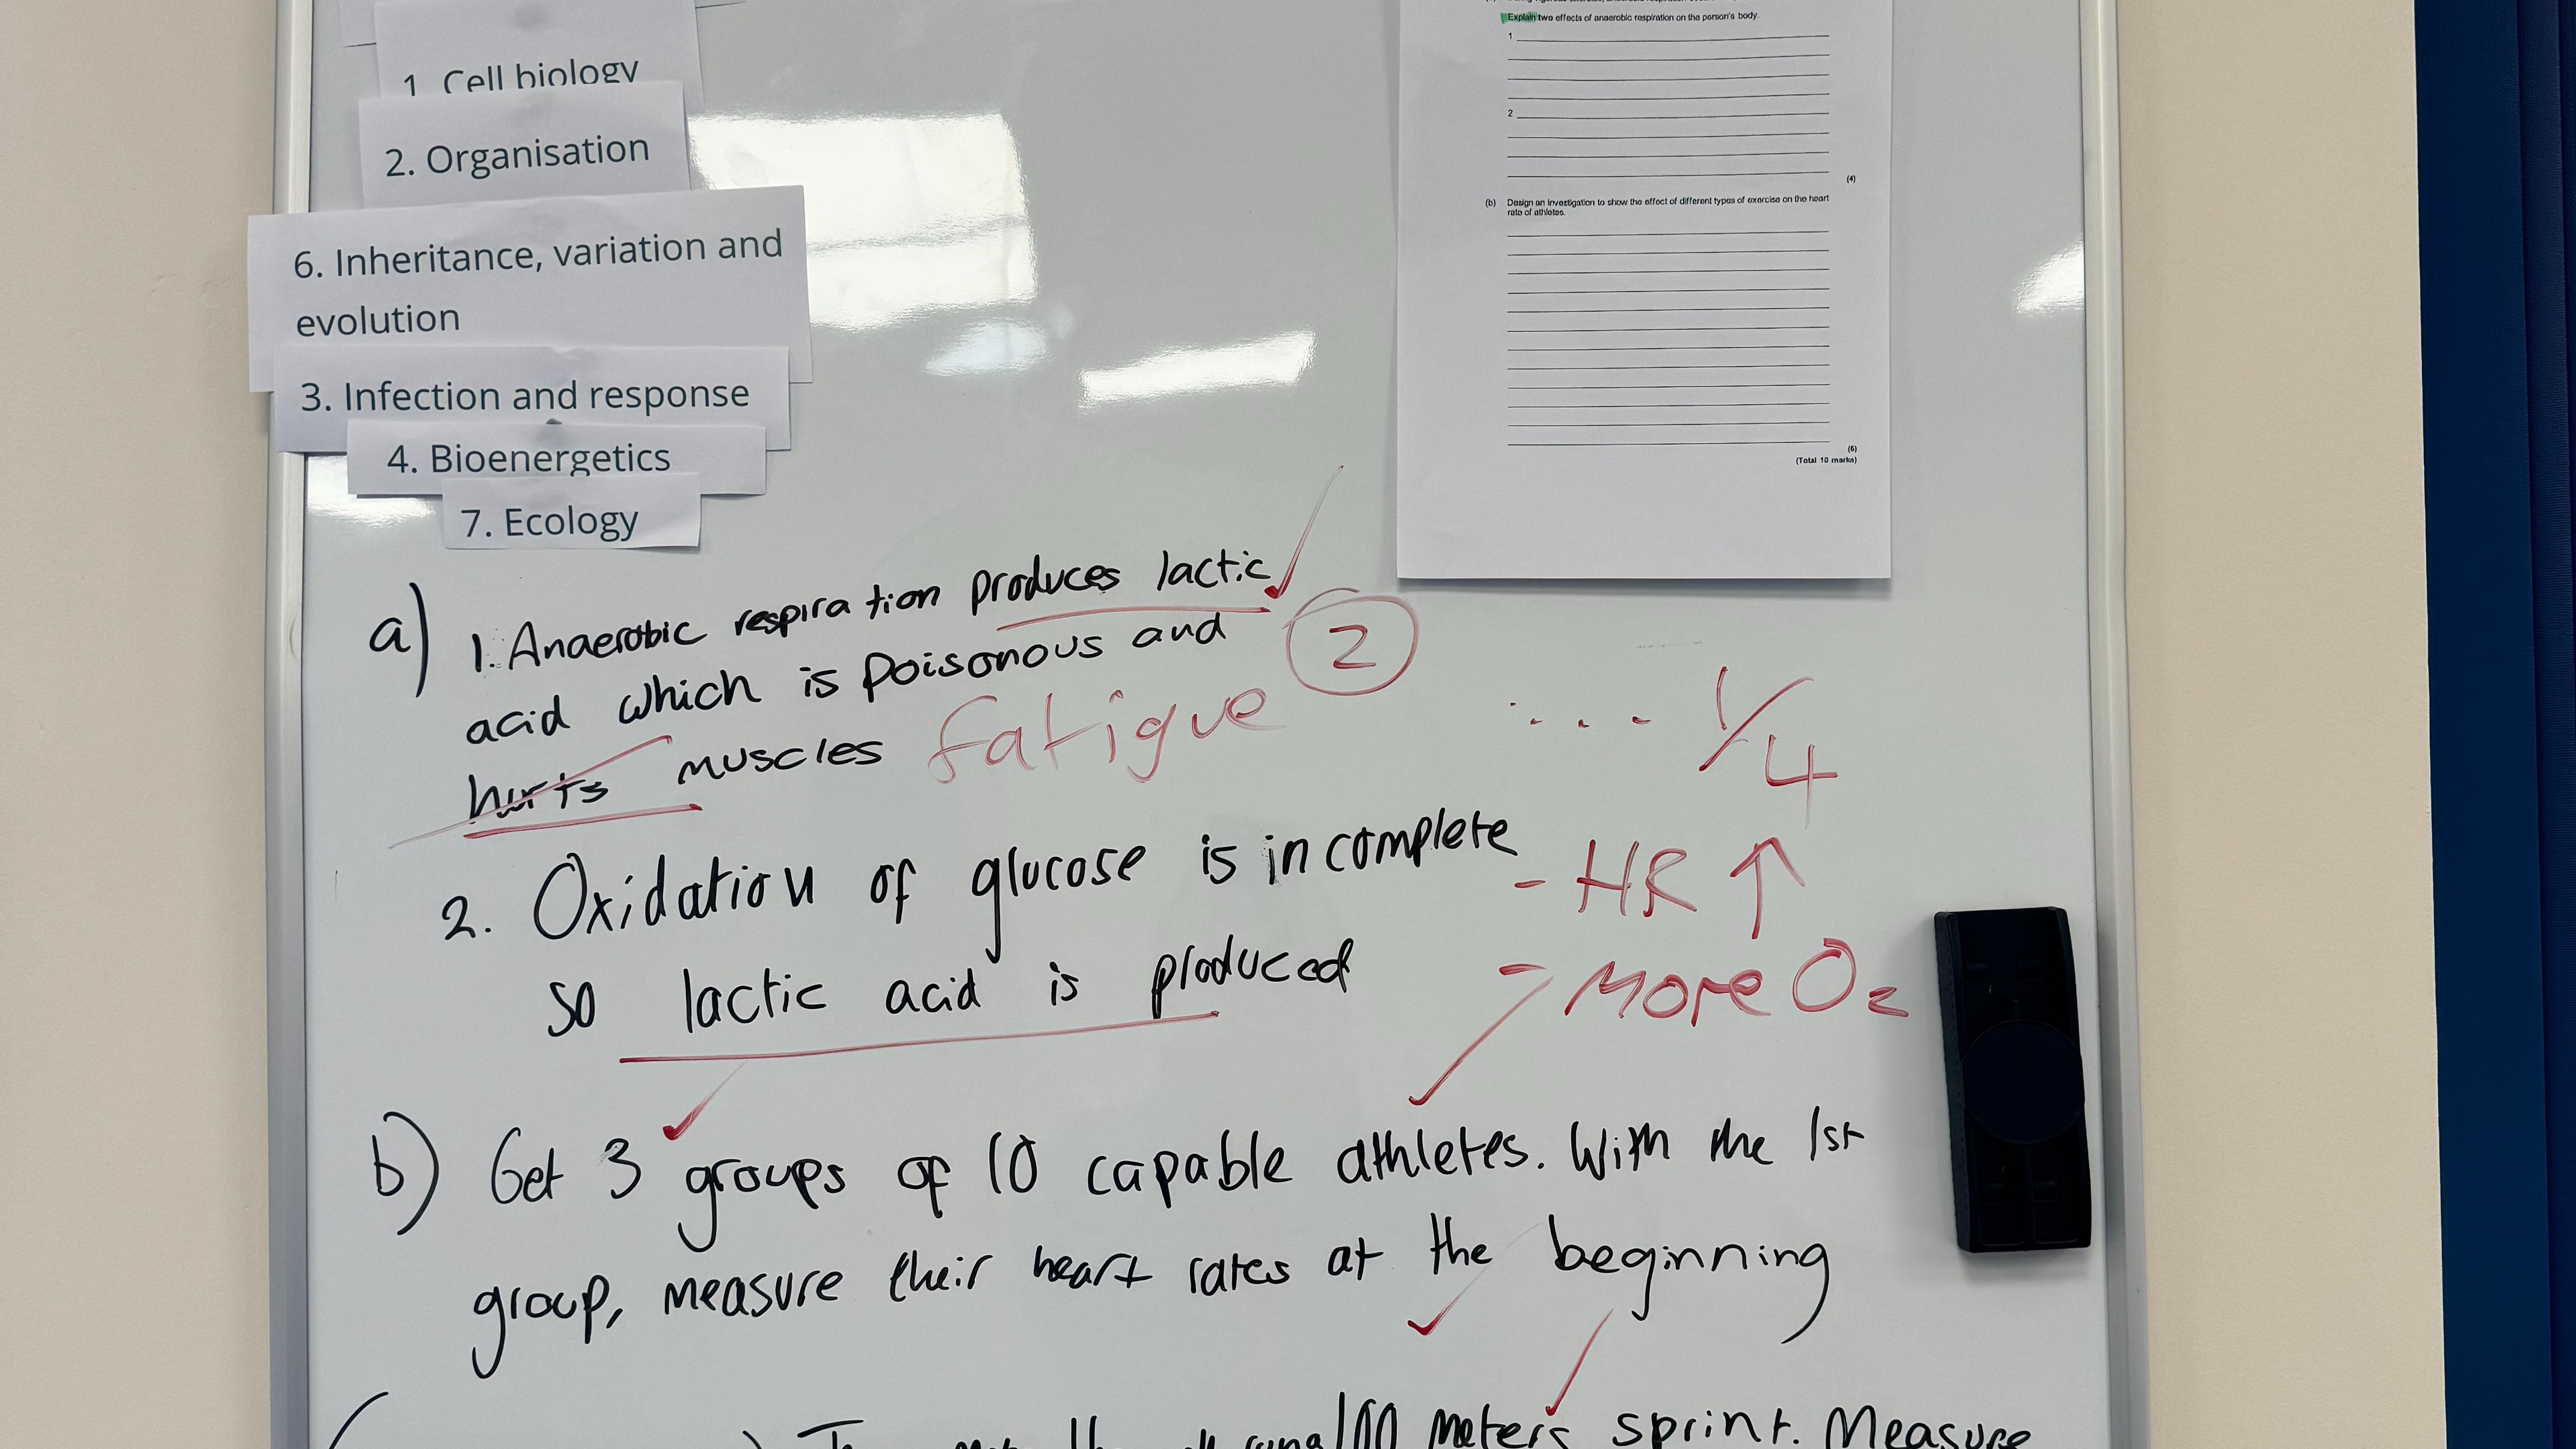 1. Cell biology
2. Organisation
6. Inheritance, variation and
evolution
3. Infection and response
4. Bioenergetics
7. Ecology
Explain two effects of anaerobic respiration on the person's body.
1
2
(4)
(b) Design an investigation to show the effect of different types of exercise on the heart
rate of athletes.
(6)
(Total 10 marks)
a) 1. Anaerobic respiration produces lactic
acid which is poisonous and
hurts muscles fatigue
2
1/4
2. Oxidation of glucose is incomplete
so lactic acid is produced
- HR ↑
- More O2
b) Get 3 groups of 10 capable athletes. With the 1st
group, measure their heart rates at the beginning
100 meters sprint. Measure